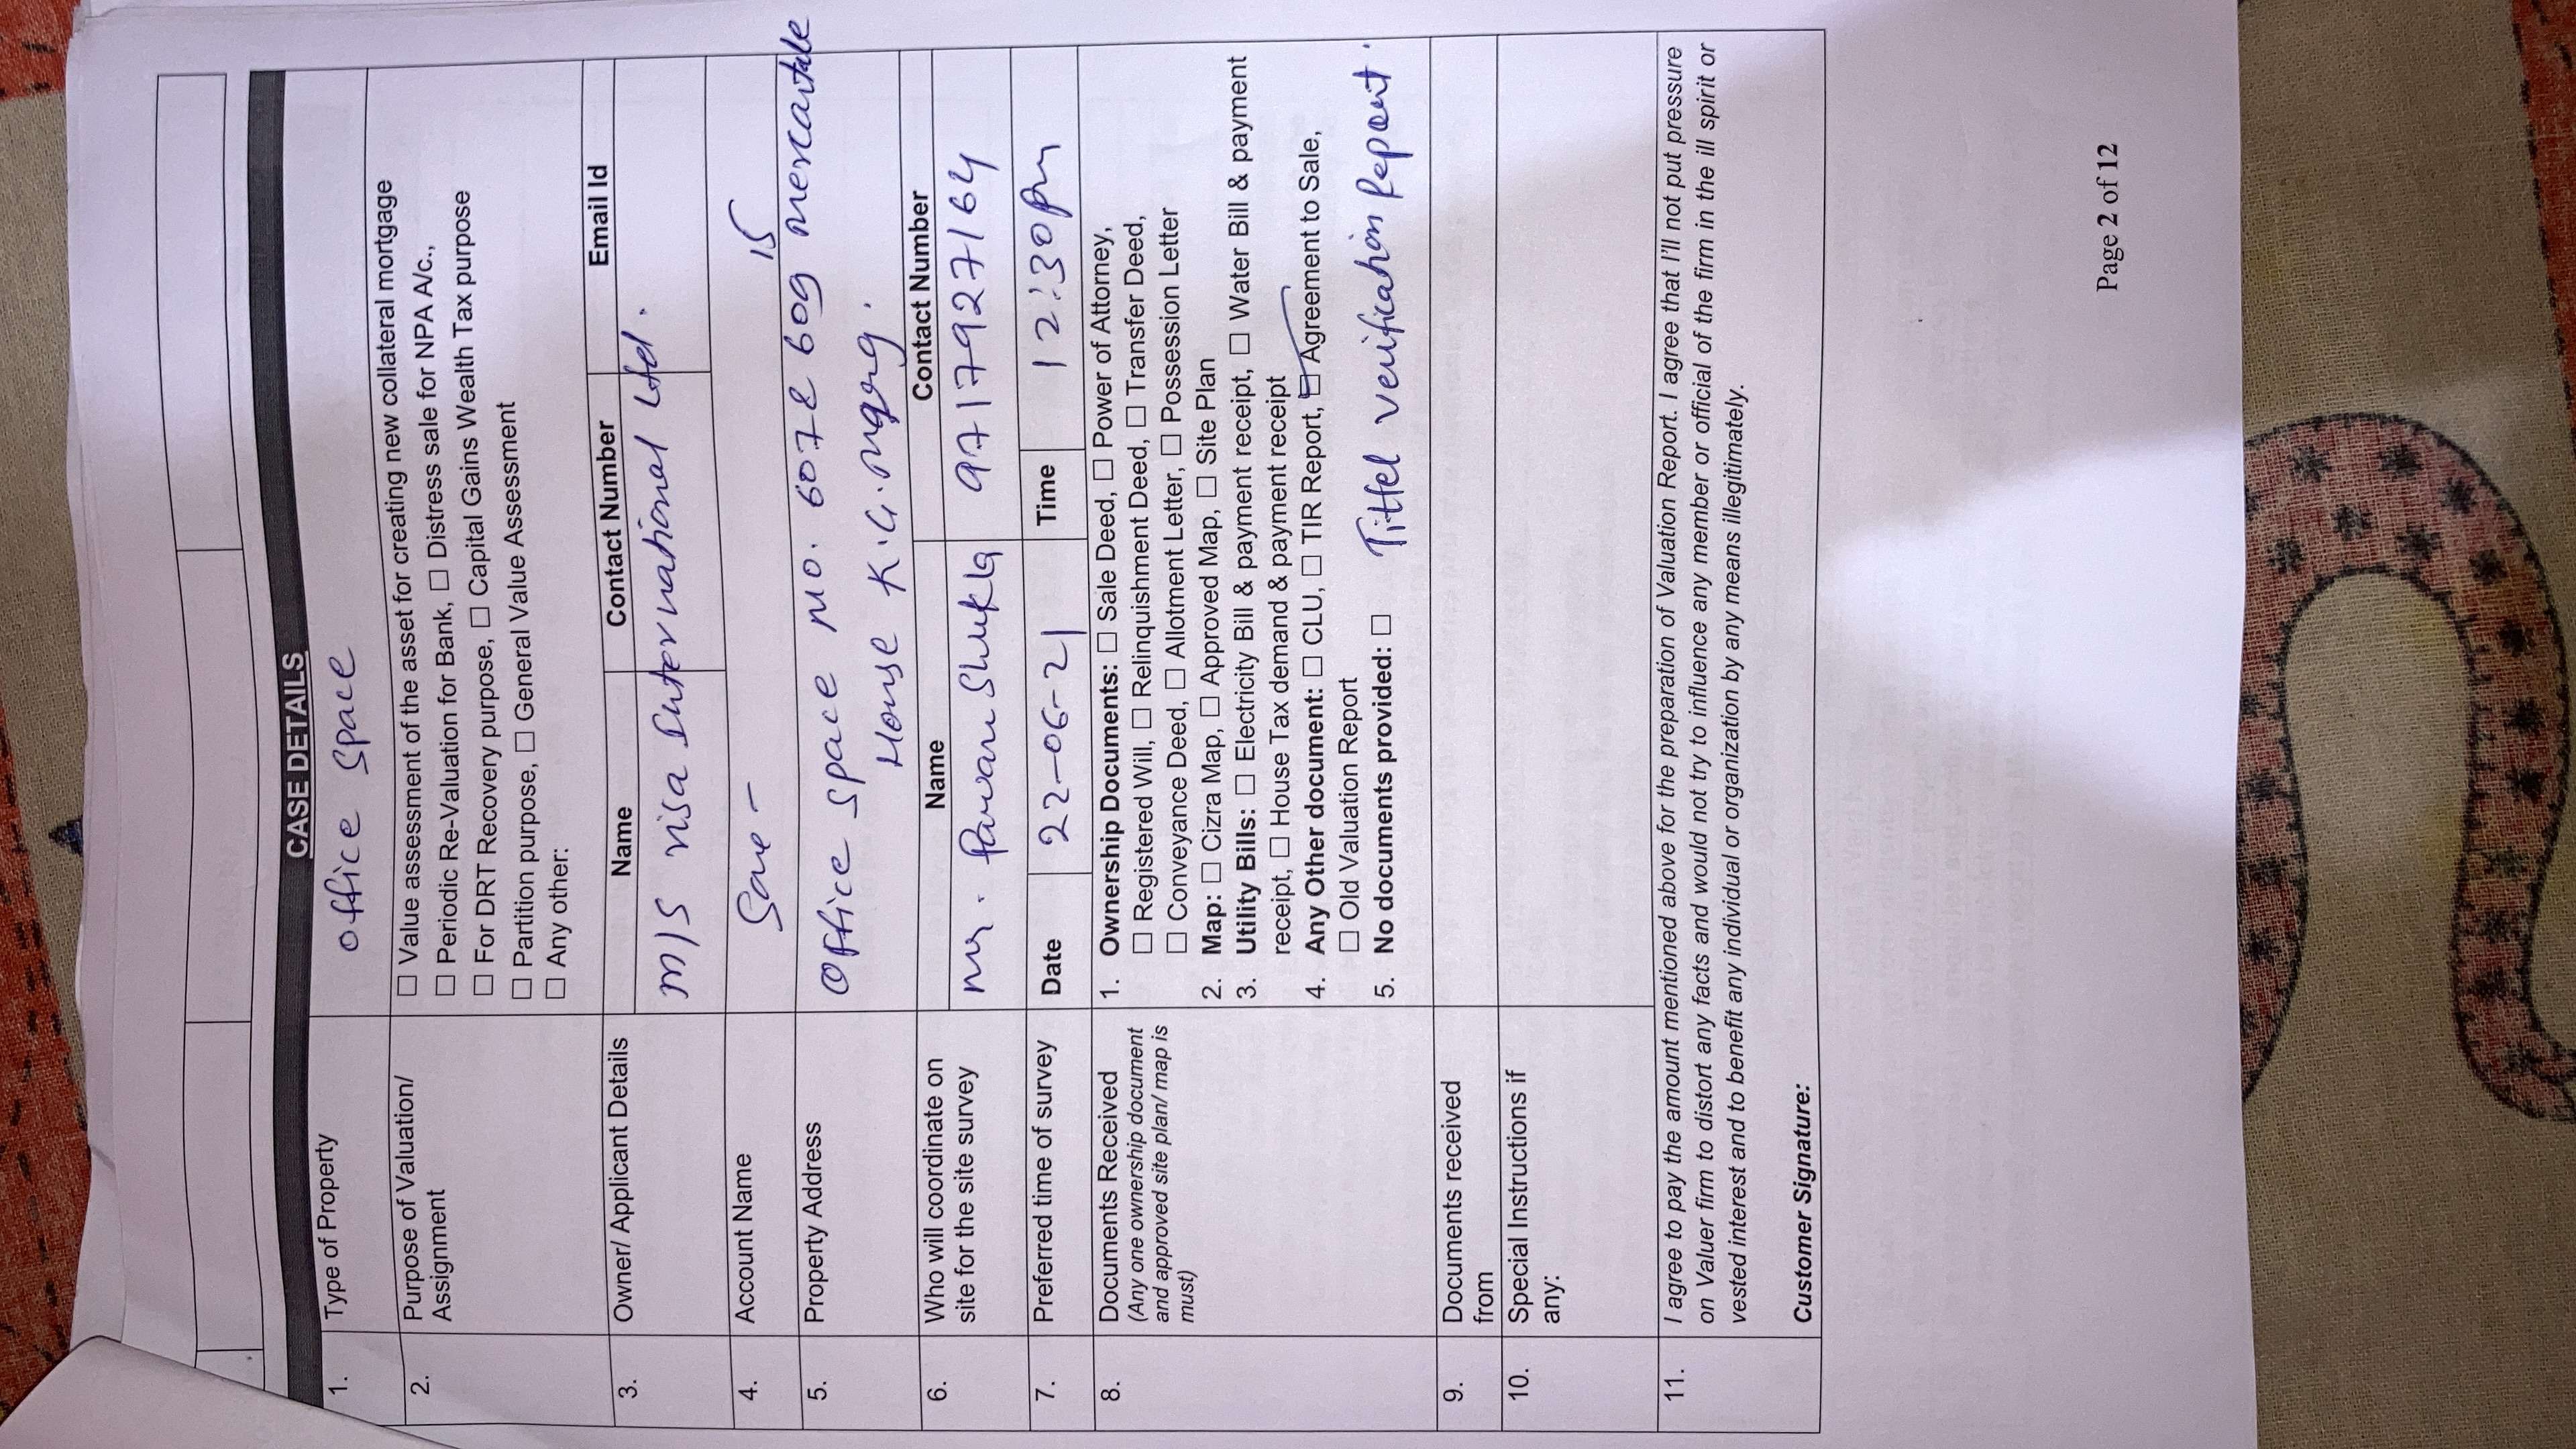 CASE DETAILS
1. Type of Property office space
2. Purpose of Valuation/ Assignment
☐ Value assessment of the asset for creating new collateral mortgage
☐ Periodic Re-Valuation for Bank, ☐ Distress sale for NPA A/c.,
☐ For DRT Recovery purpose, ☐ Capital Gains Wealth Tax purpose
☐ Partition purpose, ☐ General Value Assessment
☐ Any other:
3. Owner/ Applicant Details
Name Contact Number Email Id
M/S visa International Ltd.
4. Account Name Same -
5. Property Address
15
Office space no. 607& 609 mercantile
House K.G. marg.
6. Who will coordinate on
site for the site survey
Name Contact Number
Mr. Pawan Shukla 9717927164
7. Preferred time of survey Date 22-06-21 Time 12:30pm
8. Documents Received
(Any one ownership document
and approved site plan/ map is
must)
1. Ownership Documents: ☐ Sale Deed, ☐ Power of Attorney,
☐ Registered Will, ☐ Relinquishment Deed, ☐ Transfer Deed,
☐ Conveyance Deed, ☐ Allotment Letter, ☐ Possession Letter
2. Map: ☐ Cizra Map, ☐ Approved Map, ☐ Site Plan
3. Utility Bills: ☐ Electricity Bill & payment receipt, ☐ Water Bill & payment
receipt, ☐ House Tax demand & payment receipt
4. Any Other document: ☐ CLU, ☐ TIR Report, ☑ Agreement to Sale,
☐ Old Valuation Report
5. No documents provided: ☐ Tittel verification Report.
9. Documents received
from
10. Special Instructions if
any:
11. I agree to pay the amount mentioned above for the preparation of Valuation Report. I agree that I'll not put pressure
on Valuer firm to distort any facts and would not try to influence any member or official of the firm in the ill spirit or
vested interest and to benefit any individual or organization by any means illegitimately.
Customer Signature:
Page 2 of 12